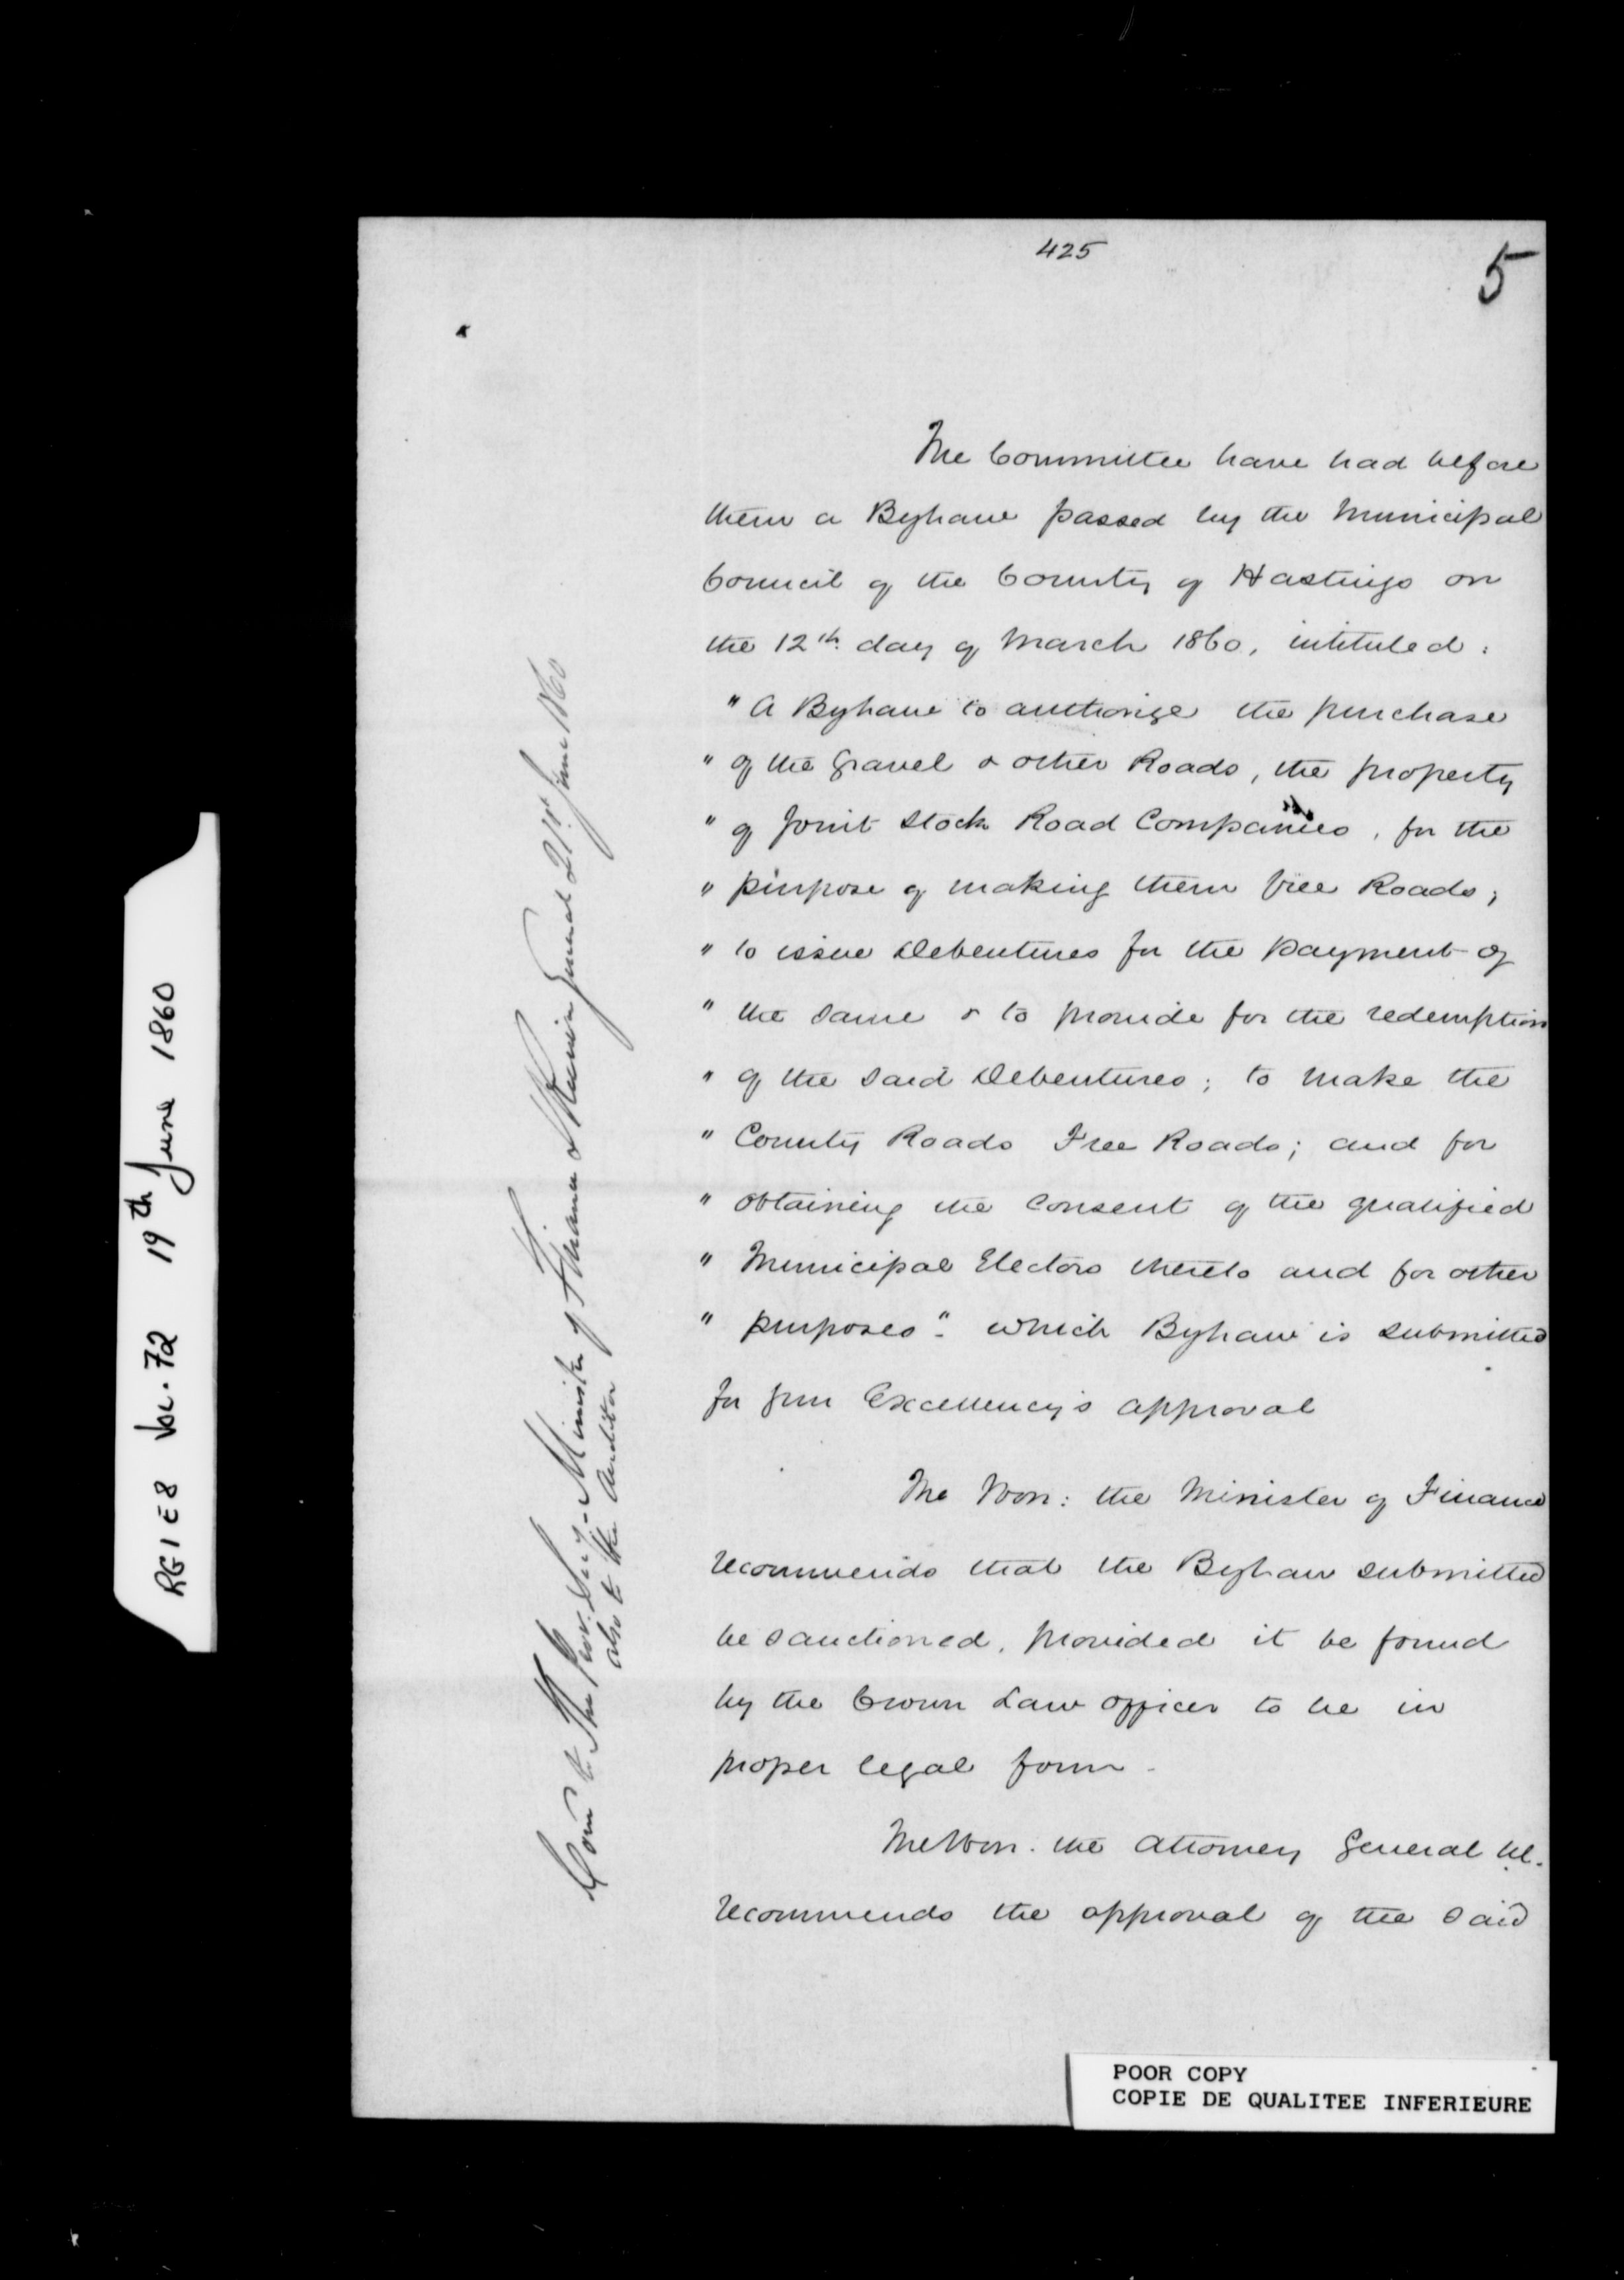 425
5
The Committee have had before
them a Bylaw passed by the Municipal
Council of the County of Hastings on
the 12th. day of March 1860, intituled:
" A Bylaw to authorize the purchase
" of the Gravel & other Roads, the property
" of Joint Stock Road Companies, for the
" purpose of making them free Roads;
" to issue Debentures for the payment of
" the same & to provide for the redemption
" of the said Debentures; to make the
" County Roads Free Roads; and for
" obtaining the consent of the qualified
" Municipal Electors thereto and for other
" purposes". which Bylaw is submitted
for your Excellency's approval
The Hon: the Minister of Finance
recommends that the Bylaw submitted
be sanctioned, provided it be found
by the Crown Law officer to be in
proper legal form.
The Hon. the Attorney General
recommends the approval of the said
Com to The Prov. Secy - Minister of Finance & Receiver General 21st June 1860
also to the Auditor
RG 1 E 8 Vol. 72 19th June 1860
POOR COPY
COPIE DE QUALITEE INFERIEURE